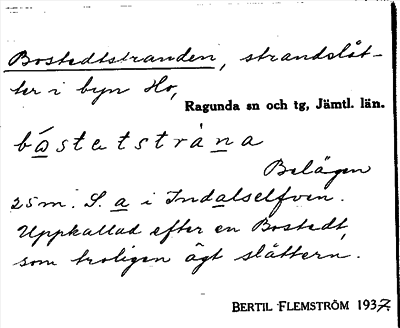 Bostedtstranden, strandslåt-
ter i byn Ho,
Ragunda sn och tg, Jämtl. län.
båstetstràna
Belägen
25 m. S. a i Indalselfven.
Uppkallad efter en Bostedt,
som troligen ägt slåttern.
BERTIL FLEMSTRÖM 1937.